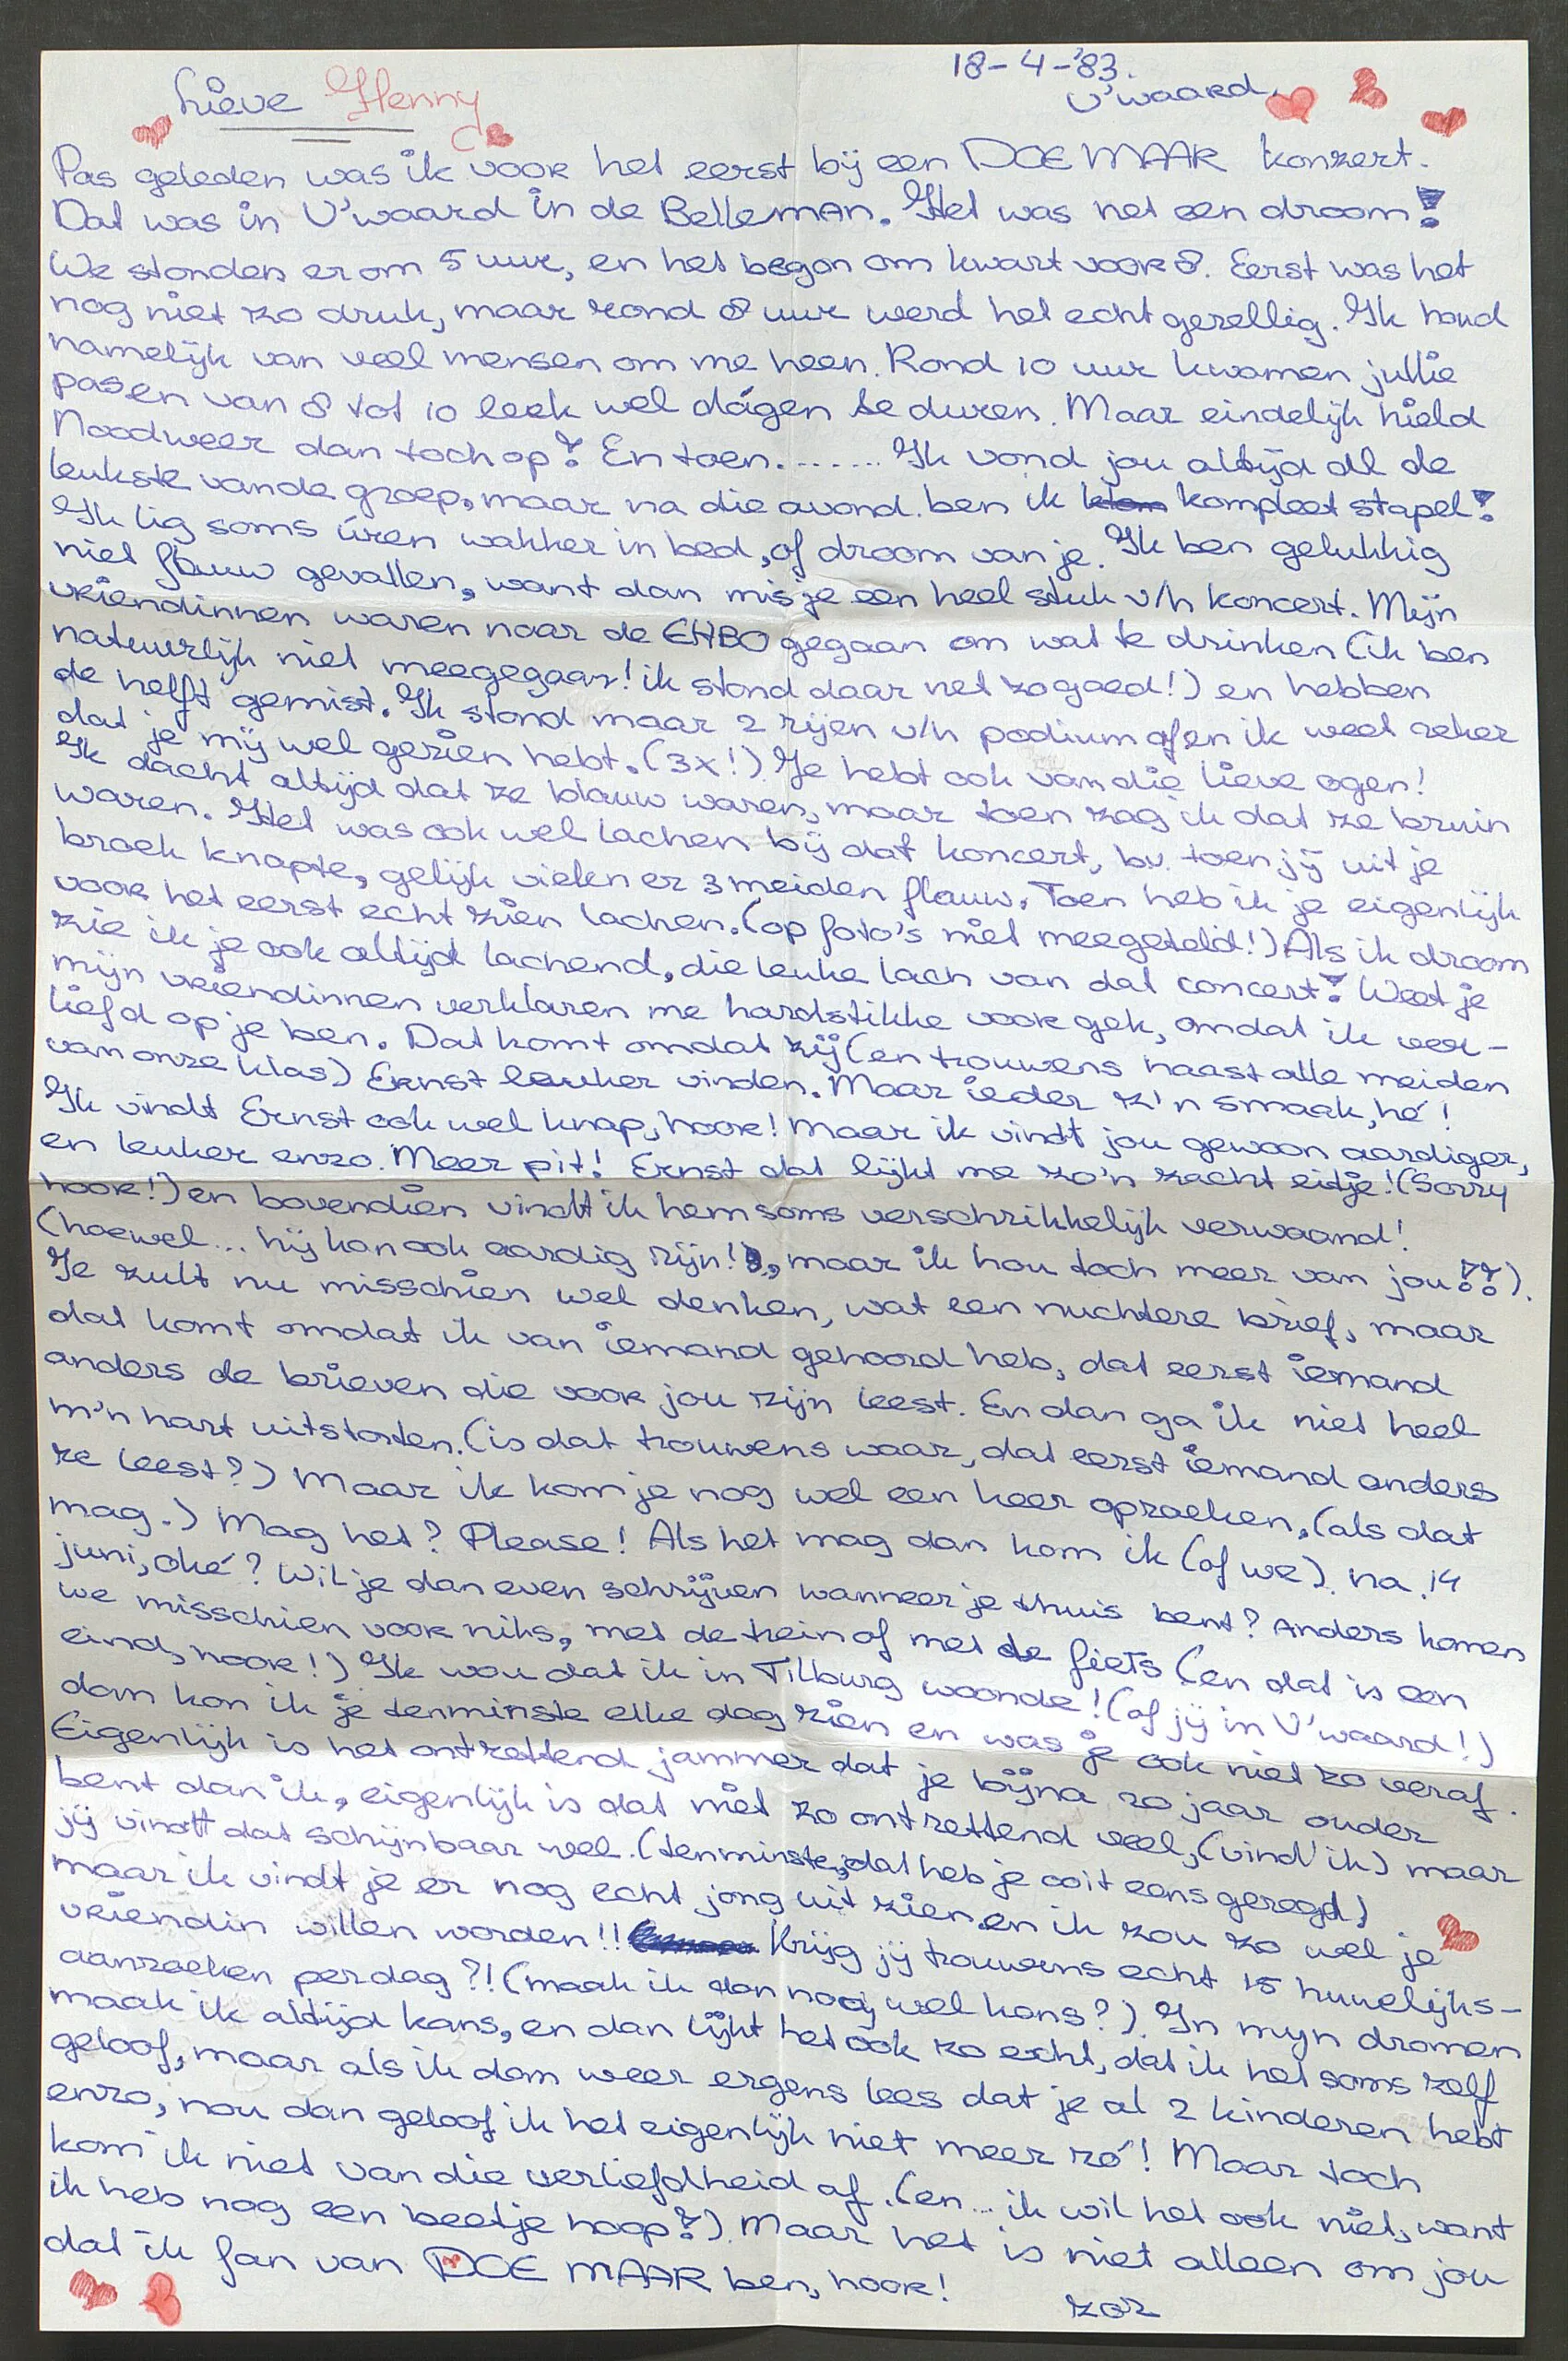 18-4-'83.
U'waard,
Lieve Henny
Pas geleden was ik voor het eerst bij een DOE MAAR konzert.
Dat was in U'waard in de BellemAn. Het was net een droom!
We stonden er om 5 uur, en het begon om kwart voor 8. Eerst was het
nog niet zo druk, maar rond 8 uur werd het echt gezellig. Ik houd
namelijk van veel mensen om me heen. Rond 10 uur kwamen jullie
pas en van 8 tot 10 leek wel dágen te duren. Maar eindelijk hield
Noodweer dan toch op! En toen....... Ik vond jou altijd al de
leukste van de groep, maar na die avond ben ik klom kompleet stapel!
Ik lig soms úren wakker in bed, of droom van je. Ik ben gelukkig
niet flauw gevallen, want dan mis je een heel stuk v/h koncert. Mijn
vriendinnen waren naar de EHBO gegaan om wat te drinken (ik ben
natuurlijk niet meegegaan! ik stond daar net zo goed!) en hebben
de helft gemist. Ik stond maar 2 rijen v/h podium af en ik weet zeker
dat je mij wel gezien hebt. (3x!) Je hebt ook van die lieve ogen!
Ik dacht altijd dat ze blauw waren, maar toen zag ik dat ze bruin
waren. Het was ook wel lachen bij dat koncert, bv. toen jij uit je
broek knapte, gelijk vielen er 3 meiden flauw. Toen heb ik je eigenlijk
voor het eerst echt zien lachen. (op foto's niet meegeteld!) Als ik droom
zie ik je ook altijd lachend, die leuke lach van dat concert! Weet je
mijn vriendinnen verklaren me hardstikke voor gek, omdat ik ver-
liefd op je ben. Dat komt omdat zij (en trouwens haast alle meiden
van onze klas) Ernst leuker vinden. Maar ieder z'n smaak, hé!
Ik vindt Ernst ook wel knap, hoor! Maar ik vindt jou gewoon aardiger,
en leuker enzo. Meer pit! Ernst dat lijkt me zo'n zacht eitje! (Sorry
hoor!) en bovendien vindt ik hem soms verschrikkelijk verwaand!
(hoewel... hij kan ook aardig zijn!), maar ik hou toch meer van jou!!).
Je zult nu misschien wel denken, wat een nuchtere brief, maar
dat komt omdat ik van iemand gehoord heb, dat eerst iemand
anders de brieven die voor jou zijn leest. En dan ga ik niet heel
m'n hart uitstorten. (is dat trouwens waar, dat eerst iemand anders
ze leest?) Maar ik kom je nog wel een keer opzoeken, (als dat
mag.) Mag het? Please! Als het mag dan kom ik (of we) na 14
juni, oké? Wil je dan even schrijven wanneer je thuis bent? Anders komen
we misschien voor niks, met de trein of met de fiets (en dat is een
eind, hoor!) Ik wou dat ik in Tilburg woonde! (of jij in U'waard!)
dan kon ik je tenminste elke dag zien en was je ook niet zo veraf.
Eigenlijk is het ontzettend jammer dat je bijna 20 jaar ouder
bent dan ik, eigenlijk is dat niet zo ontzettend veel, (vind ik) maar
jij vindt dat schijnbaar wel. (tenminste, dat heb je ooit eens gezegd)
maar ik vindt je er nog echt jong uit zien en ik zou zo wel je
vriendin willen worden!! Krijg jij trouwens echt 15 huwelijks-
aanzoeken per dag?! (maak ik dan nog wel kans?) In mijn dromen
maak ik altijd kans, en dan lijkt het ook zo echt, dat ik het soms zelf
geloof, maar als ik dan weer ergens lees dat je al 2 kinderen hebt
enzo, nou dan geloof ik het eigenlijk niet meer zó! Maar toch
kom ik niet van die verliefdheid af. (en... ik wil het ook niet, want
ik heb nog een beetje hoop!) Maar het is niet alleen om jou
dat ik fan van DOE MAAR ben, hoor!
zoz